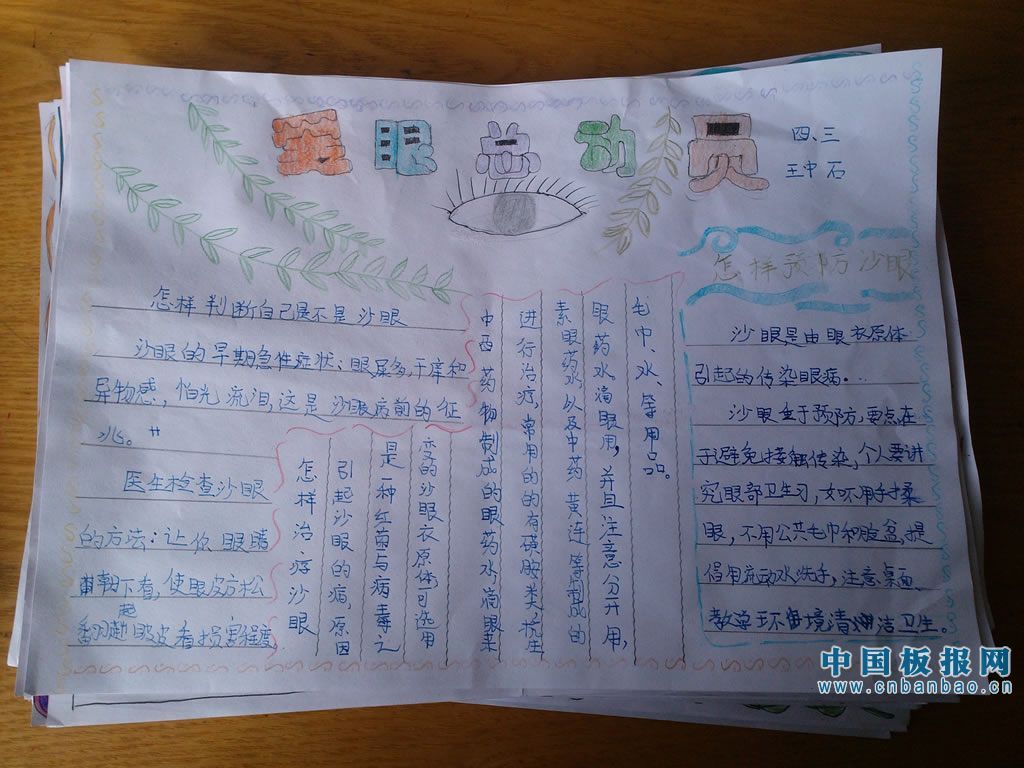 爱眼总动员
四、三
王中石
怎样判断自己是不是沙眼
沙眼的早期急性症状:眼屎多,干痒和
异物感,怕光流泪,这是沙眼病前的征
兆。
医生检查沙眼
的方法:让你眼睛
朝下看,使眼皮方松
翻起眼皮看损害程度
怎样治疫沙眼
引起沙眼的病,原因
是一种红菌与病毒之
变的沙眼衣原体,可选用
中西药物制成的眼药水,滴眼来
进行治疗,常用的的有磺胺类抗生
素眼药水以及中药黄连等制成的
眼药水滴眼用,并且注意分开用,
毛巾、水、等用品。
怎样预防沙眼
沙眼是由眼衣原体
引起的传染眼病。
沙眼生于预防,要点在
于避免接触传染,个人要讲
究眼部卫生习,如不用手揉
眼,不用公共毛巾和脸盆,提
倡用流动水洗手,注意桌面、
教室环境清洁卫生。
中国板报网
www.cnbanbao.cn